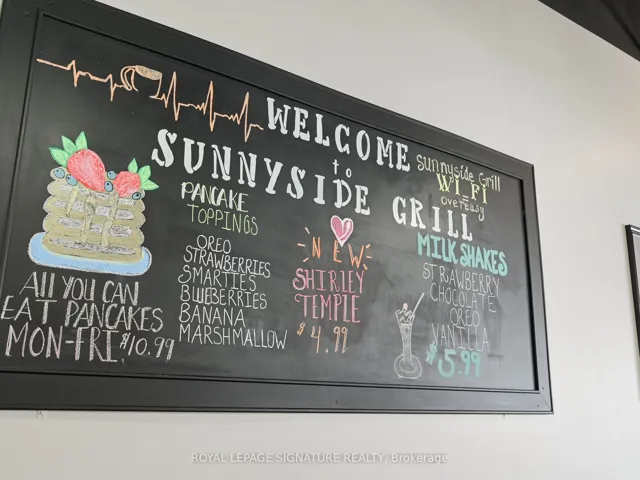 WELCOME
to
SUNNYSIDE GRILL
sunnyside Grill
WI-FI
overeasy
PANCAKE
TOPPINGS
OREO
STRAWBERRIES
SMARTIES
BLUEBERRIES
BANANA
MARSHMALLOW
ALL YOU CAN
EAT PANCAKES
MON-FRI $10.99
NEW
SHIRLEY
TEMPLE
$4.99
MILKSHAKES
STRAWBERRY
CHOCOLATE
OREO
VANILLA
$5.99
ROYAL LEPAGE SIGNATURE REALTY, Brokerage